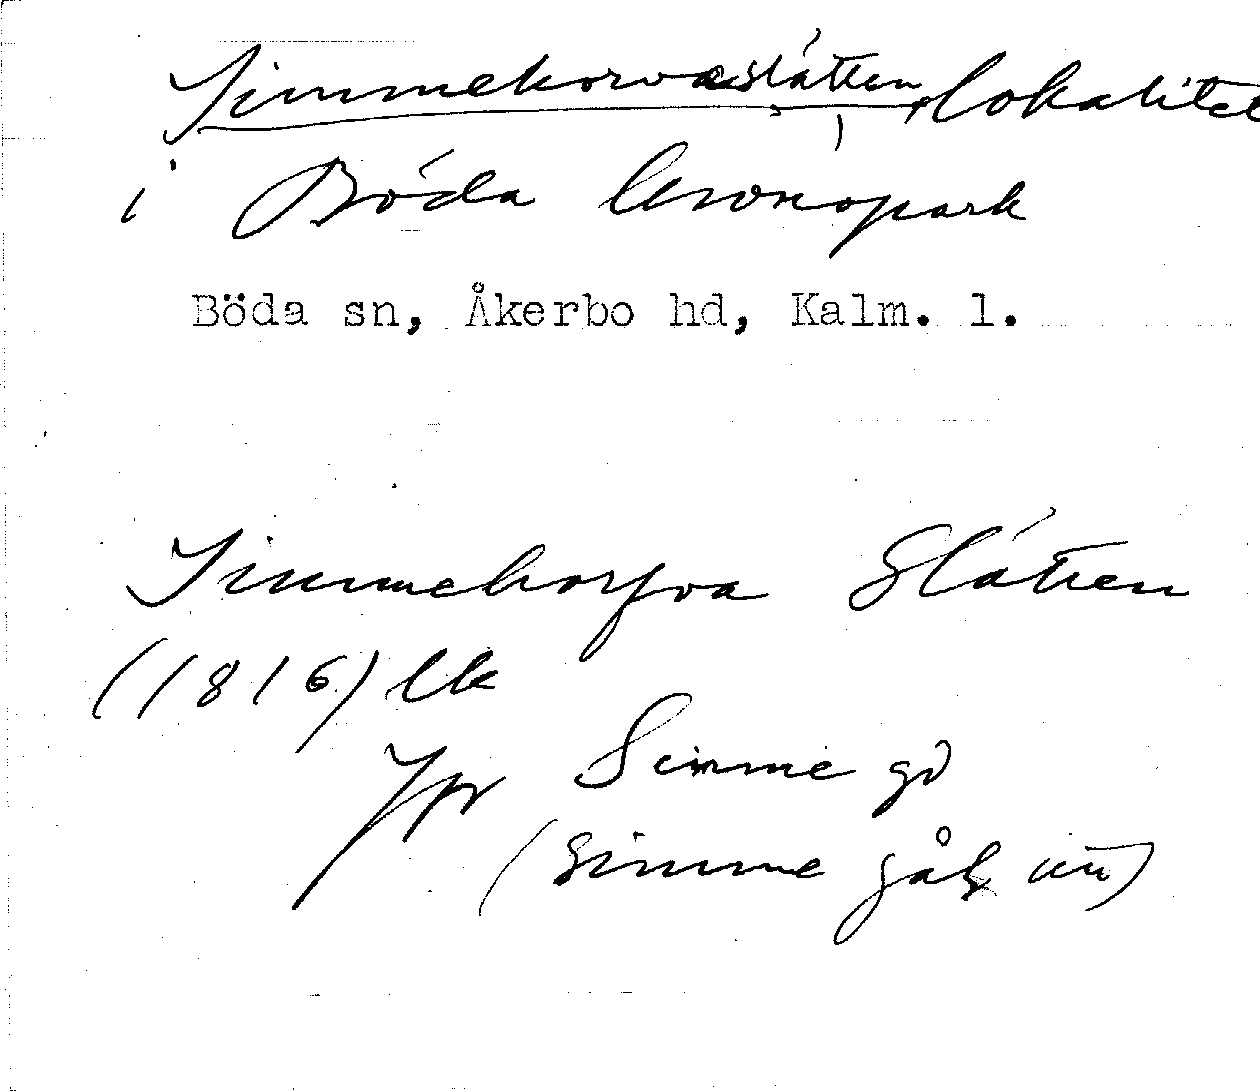 Simmekorvaslåtten, lokalitet
i Böda kronopark
Böda sn, Åkerbo hd, Kalm. l.
Simmekorfva Slåtten
(1816) lk
Jfr Simme
(Simme gåk